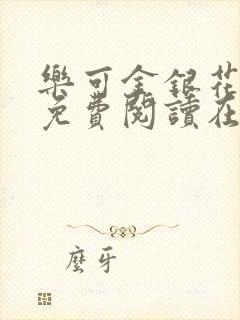 樂可金銀花
免費閱讀在
麼牙